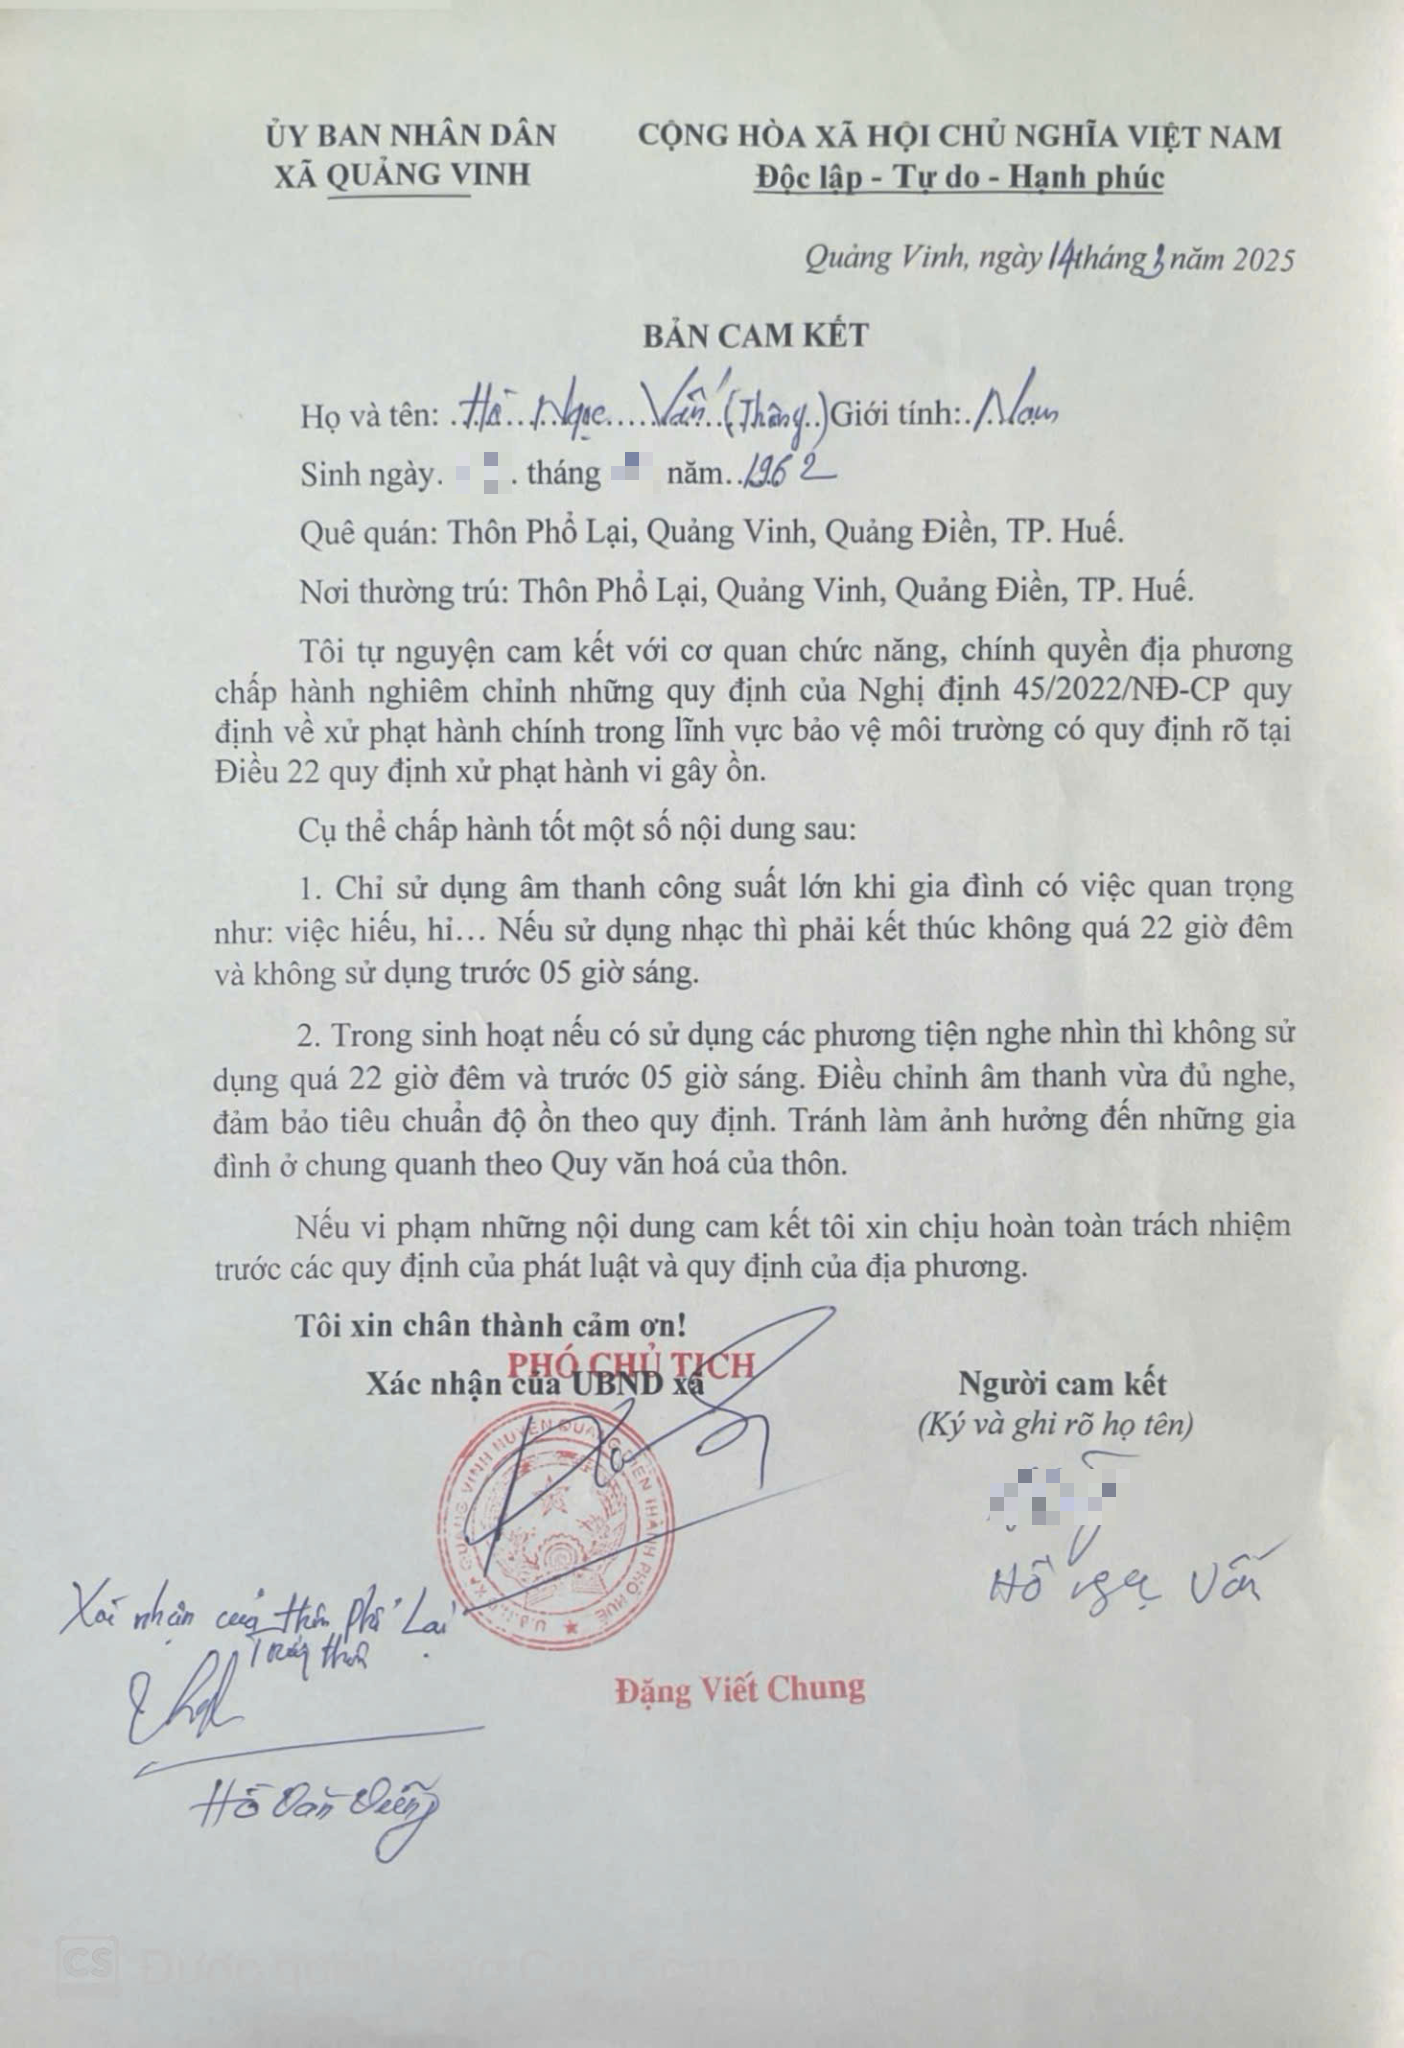 ỦY BAN NHÂN DÂN
XÃ QUẢNG VINH
CỘNG HÒA XÃ HỘI CHỦ NGHĨA VIỆT NAM
Độc lập - Tự do - Hạnh phúc
Quảng Vinh, ngày 14 tháng 3 năm 2025
BẢN CAM KẾT
Họ và tên: Hồ Ngọc Vấn (Thông) Giới tính: Nam
Sinh ngày. . tháng năm 1962
Quê quán: Thôn Phổ Lại, Quảng Vinh, Quảng Điền, TP. Huế.
Nơi thường trú: Thôn Phổ Lại, Quảng Vinh, Quảng Điền, TP. Huế.
Tôi tự nguyện cam kết với cơ quan chức năng, chính quyền địa phương
chấp hành nghiêm chỉnh những quy định của Nghị định 45/2022/NĐ-CP quy
định về xử phạt hành chính trong lĩnh vực bảo vệ môi trường có quy định rõ tại
Điều 22 quy định xử phạt hành vi gây ồn.
Cụ thể chấp hành tốt một số nội dung sau:
1. Chỉ sử dụng âm thanh công suất lớn khi gia đình có việc quan trọng
như: việc hiếu, hỉ... Nếu sử dụng nhạc thì phải kết thúc không quá 22 giờ đêm
và không sử dụng trước 05 giờ sáng.
2. Trong sinh hoạt nếu có sử dụng các phương tiện nghe nhìn thì không sử
dụng quá 22 giờ đêm và trước 05 giờ sáng. Điều chỉnh âm thanh vừa đủ nghe,
đảm bảo tiêu chuẩn độ ồn theo quy định. Tránh làm ảnh hưởng đến những gia
đình ở chung quanh theo Quy văn hoá của thôn.
Nếu vi phạm những nội dung cam kết tôi xin chịu hoàn toàn trách nhiệm
trước các quy định của phát luật và quy định của địa phương.
Tôi xin chân thành cảm ơn!
PHÓ CHỦ TỊCH
Xác nhận của UBND xã
Người cam kết
(Ký và ghi rõ họ tên)
Hồ Ngọc Vấn
Xác nhận của thôn Phổ Lại
Trưởng thôn
Đặng Viết Chung
Hồ Văn Dũng
CS Được quét bằng CamScanner